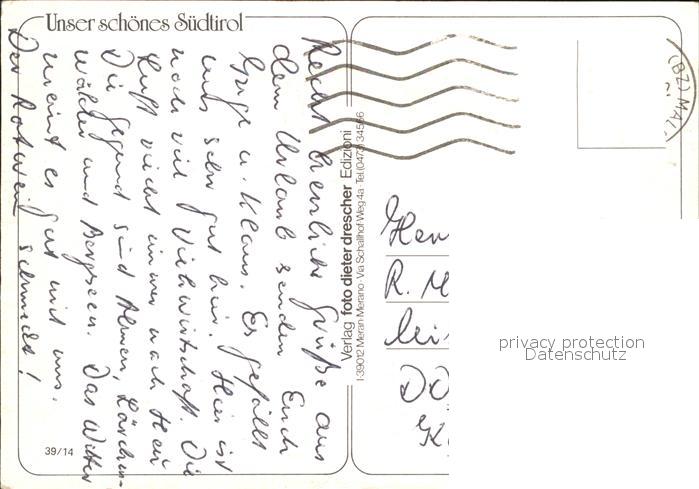 Unser schönes Südtirol
Recht herzliche Grüße aus
dem Urlaub senden Euch
u. Klaus. Es gefällt
uns sehr gut hier. Hier ist
noch viel Viehwirtschaft. Die
Luft riecht immer nach Heu
Die Gegend sind Almen, Lärchen-
wälder und Bergseen. Das Wetter
meint es gut mit uns.
Der Rotwein schmeckt!
39/14
Verlag foto dieter drescher Edizioni
I-39012 Meran-Merano · Via Schallhof-Weg 4a · Tel. (0473) 34566
(BZ) MA
Her
R. M
Lei
DO
K
privacy protection
Datenschutz